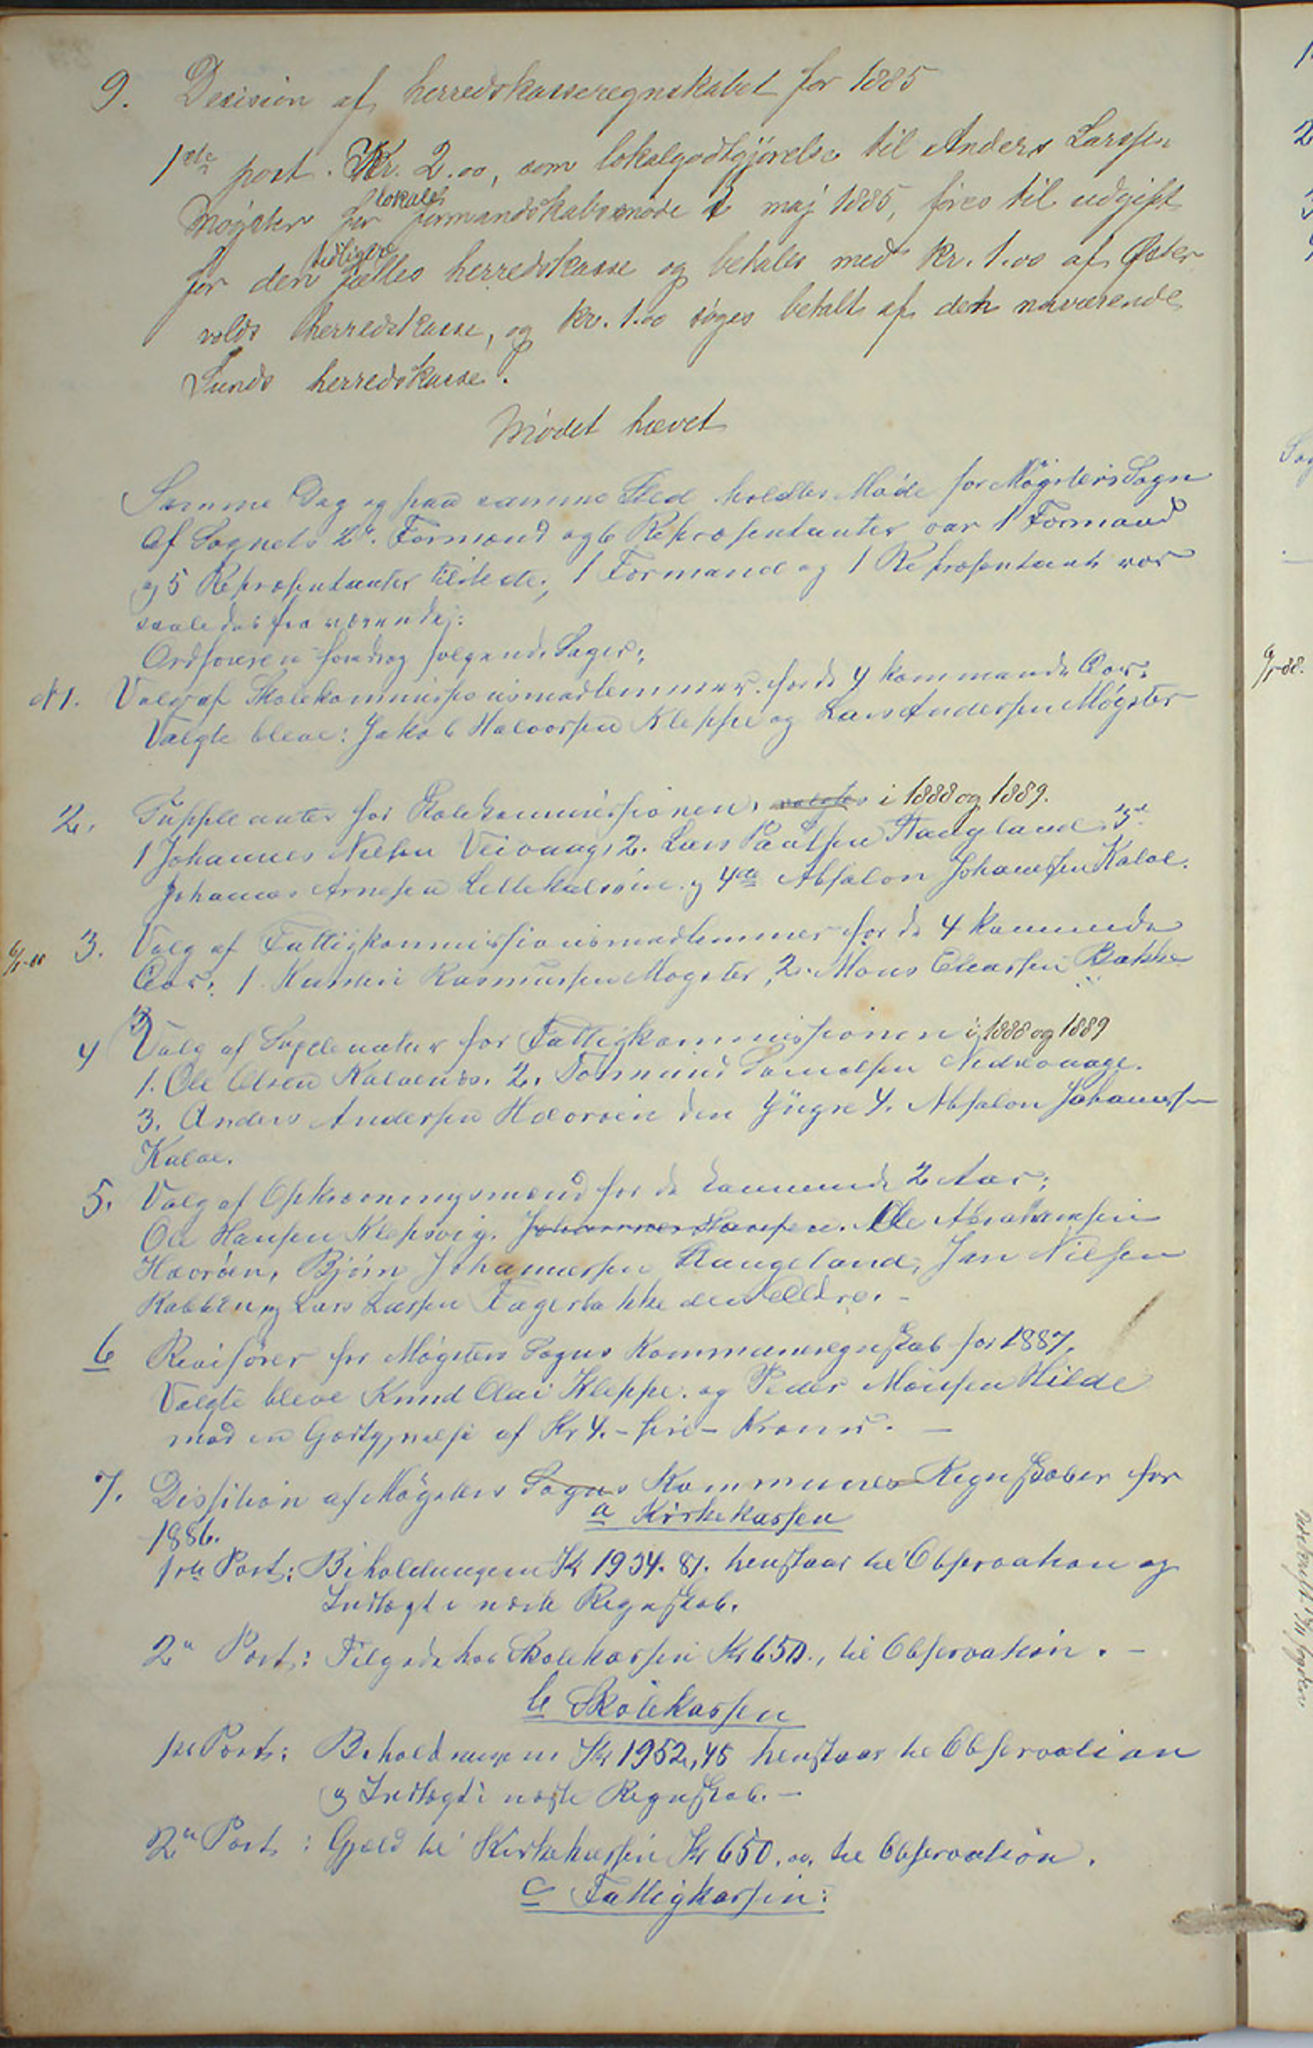 9. Desision af herredskasseregnskabet for 1885
1ste post. Kr. 2.00, som lokalgodtgjörelse til Anders Larssen
lokalet
Møgster for formandskabsmøde 2 maj 1885, føres til udgift
tidligere
for den fælles herredskasse og betales med kr. 1.00 af Øster
volds herredskasse, og kr. 1.00 søges betalt af den nuværende
Sunds herredskasse.
Mödet hævet
Samme Dag og paa samme Sted holdtes Møde for Møgsters Sogn
Af Sognets 2de Formænd og 6 Repræsentanter var 1 Formand
og 5 Repræsentanter tilstede, 1 Formand og 1 Repræsentant var
saaledes fraværende;
Ordføreren foredrog følgende Sager;
N1. Valg af Skolekommissionsmedlemmer for de 4 kommende Aar.
Valgte bleve: Jakob Halvorsen Kleppe og Lars Andersen Møgster
2. Supplenter for Skolekommissionen, valgtes i 1888 og 1889.
1 Johannes Nilsen Veivaag, 2. Lars Paulsen Stangeland 3de
Johannes Arnesen Lillekalsøen og 4de Absalon Johannessen Kalve.
3. Valg af Fattigkommissionsmedlemmer for de 4 kommende
Aar: 1. Rasmussen Møgster, 2. Mons Bakke
4 Valg af Suplenter for Fattigkommissionen i 1888 og 1889
1. Ole Olsen Kalvenes. 2. Tormund Samuelsen Nedrevaage.
3. Anders Andersen Hævrøen den Yngre 4. Absalon Johannessen
Kalve.
5. Valg af Opkrævningsmænd for de kommende 2 Aar;
Ole Hansen Klepsvig. Johannes Hansen. Ole Abrahamsen
Hævrøen, Bjørn Johannessen Stangeland, Jan Nilsen
Rabben og Lars Larsen Fagerbakke den Ældre. -
6 Revisører for Møgsters Sogns Kommuneregnskab for 1887.
Valgte bleve Knud Olai Kleppe. og Peder Monsen Hilde
mod en Godtgjørelse af Kr 4. - fire - Kroner. -
7. Desision af Møgsters Sogns Kommunes Regnskaber for
1886.
a Kirkekassen
1ste Post: Beholdningen Kr 1934.81. henstaar til Observation og
Indtægt i næste Regnskab.
2n Post: Tilgode hos Skolekassen Kr 650., til Observation. -
b Skolekassen
1ste Post: Beholdningen Kr 1952,45 henstaar til Observation
og Indtægt i næste Regnskab. -
2n Post: Gjæld til Kirkekassen Kr 650.00. til Observation.
c Fattigkassen: